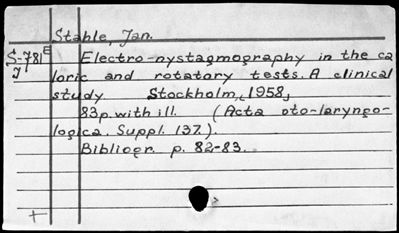 Stahle, Jan.
S-781E
J
Electro-nystagmography in the ca
loric and rotatory tests. A clinical
study Stockholm, 1958,
83p. with ill. (Acta oto-laryngo-
logica. Suppl. 137.).
Bibliogr. p. 82-83.